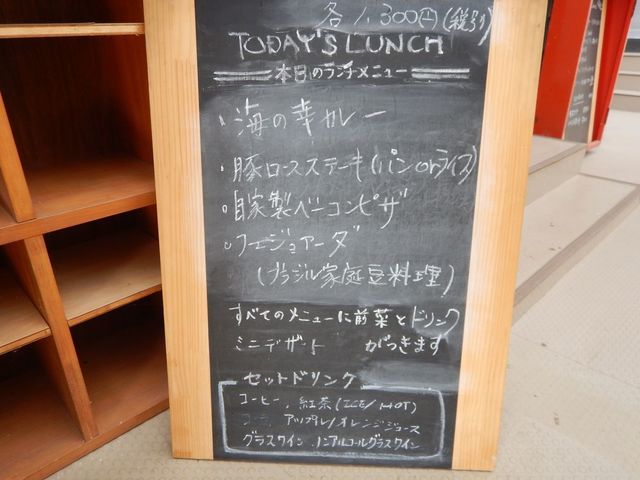 各1,300円(税別)
TODAY'S LUNCH
本日のランチメニュー
・海の幸カレー
・豚ロースステーキ(パンorライス)
・自家製ベーコンピザ
・フェジョアーダ
(ブラジル家庭豆料理)
すべてのメニューに前菜とドリンク
ミニデザート がつきます
セットドリンク
コーヒー、紅茶(ICE/HOT)
コーラ アップル/オレンジジュース
グラスワイン ノンアルコールグラスワイン